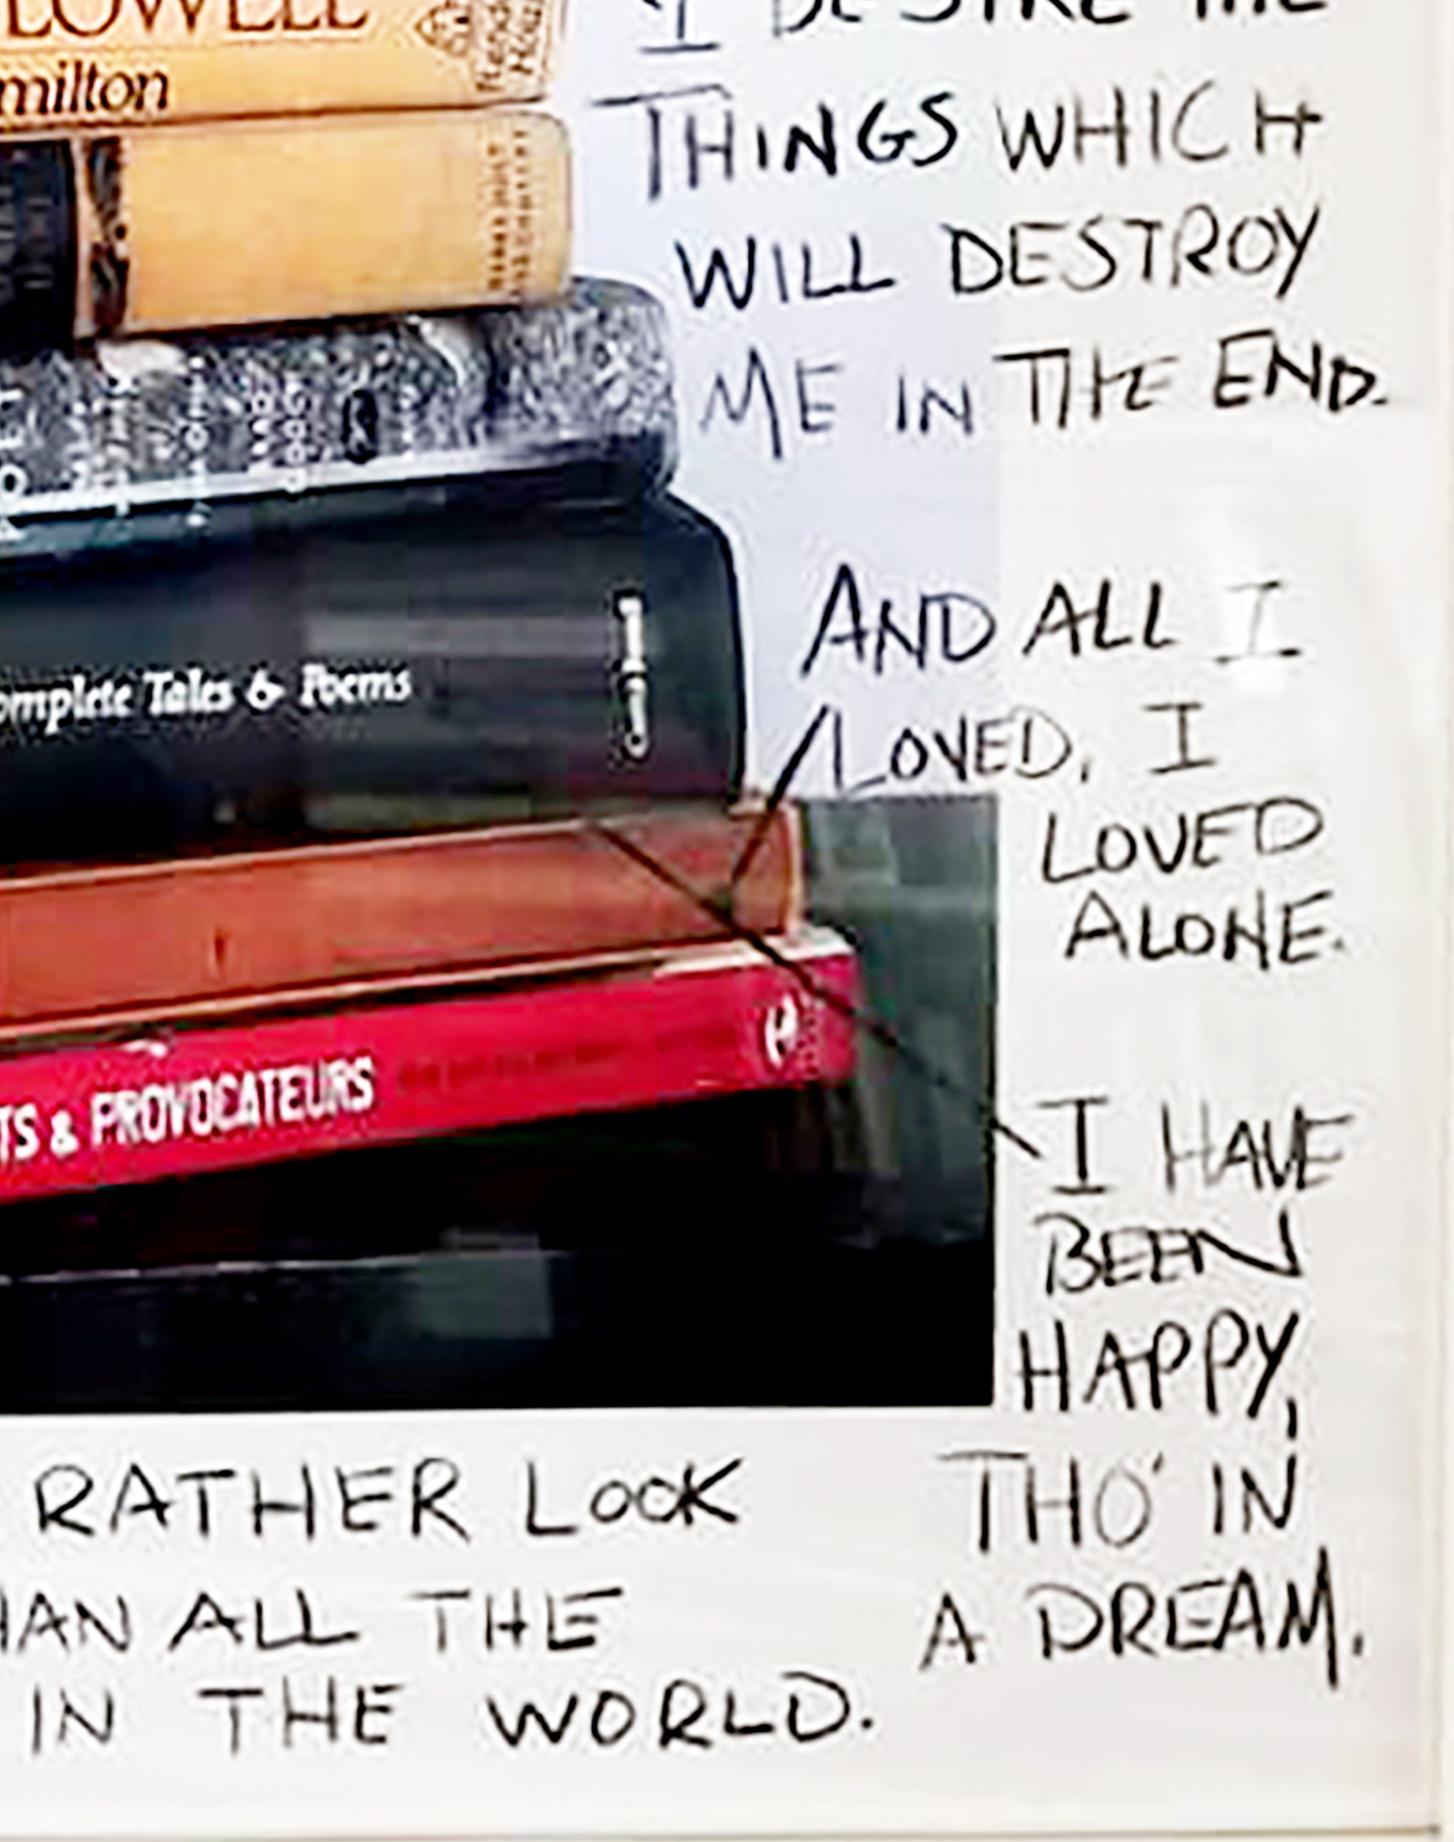 LOWELL
milton
Random
House
I DESIRE THE
THINGS WHICH
WILL DESTROY
ME IN THE END.
omplete Tales & Poems
AND ALL I
LOVED, I
LOVED
ALONE.
TS & PROVOCATEURS
I HAVE
BEEN
HAPPY,
THO' IN
A DREAM.
RATHER LOOK
HAN ALL THE
IN THE WORLD.